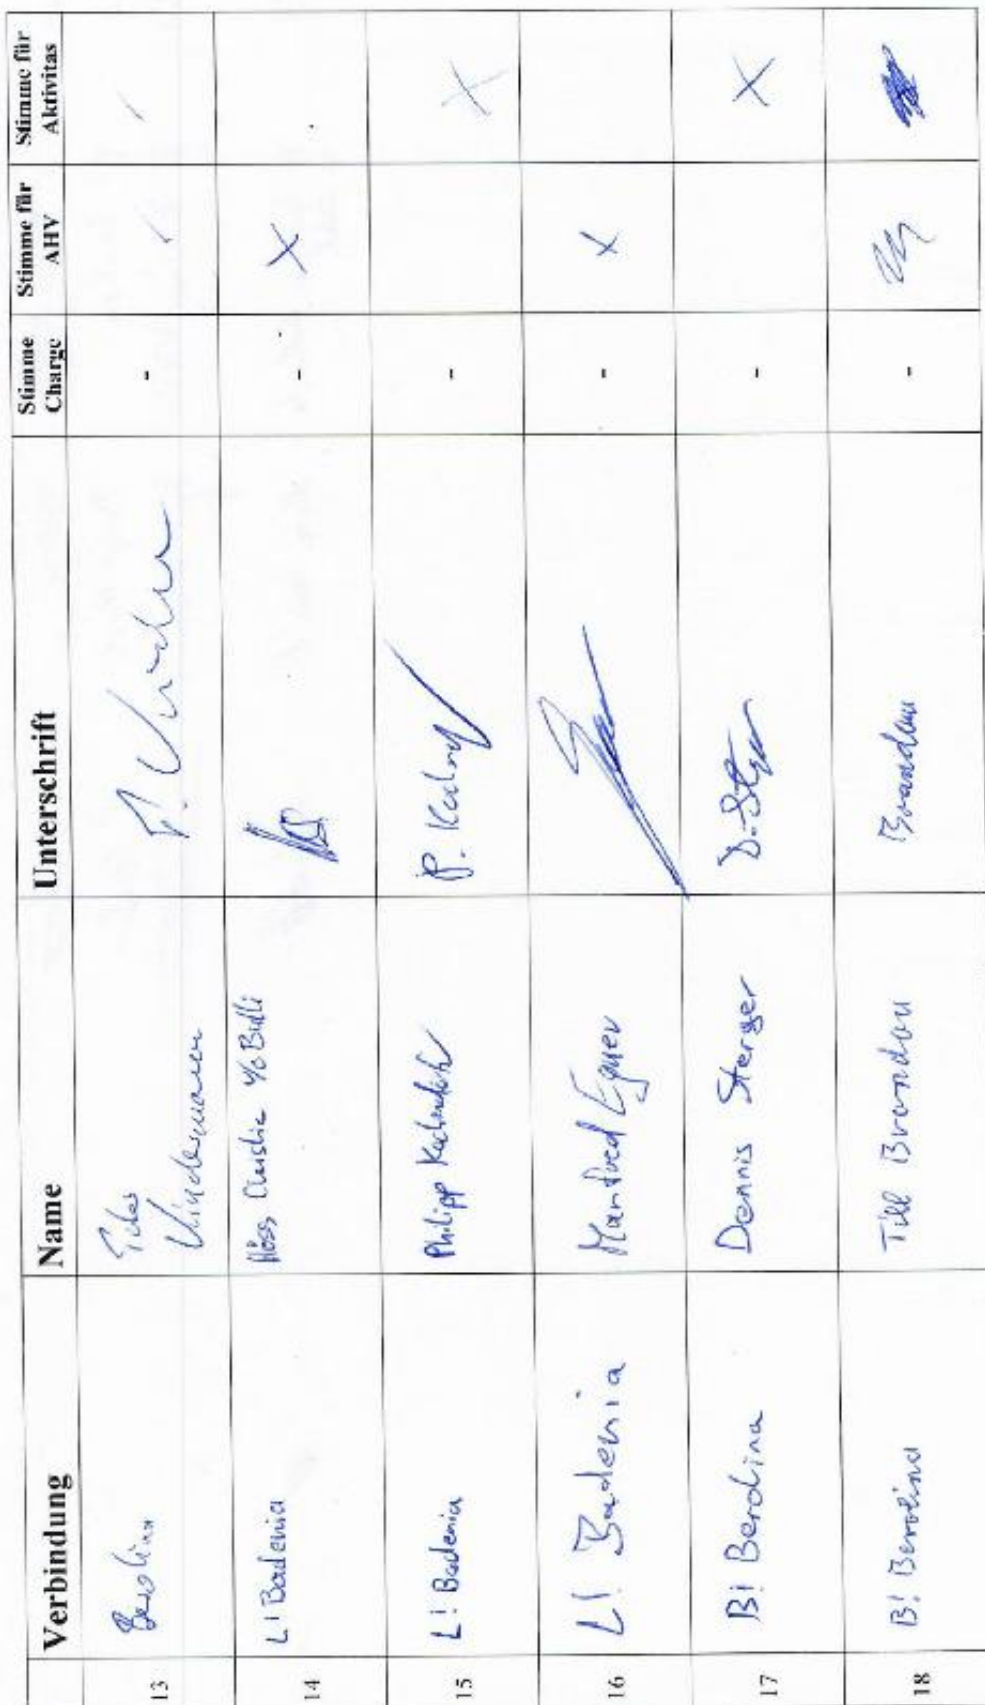 Verbindung Name Unterschrift Stimme Charge Stimme für AHV Stimme für Aktivitas
13 Berolina -
14 L! Badenia Höss, c/o Bulli - X
15 L! Badenia Philipp P. - X
16 L! Badenia Manfred Egner - X
17 B! Berolina Dennis Sterger D. Sterger - X
18 B! Berolina Till Brandau Brandau -